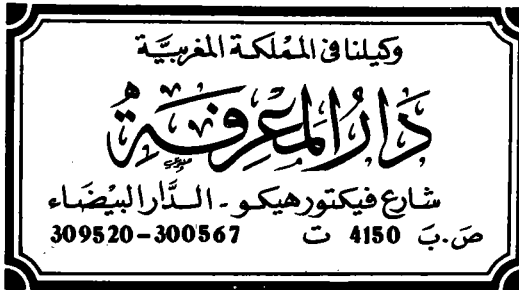 وَكيلنا في المَمْلكَة المغربيَّة
دَارُ المَعْرِفَةِ
شارع فيكتور هيكو - الدَّار البيْضَاء
صَ.بَ 4150 ت 300567-309520